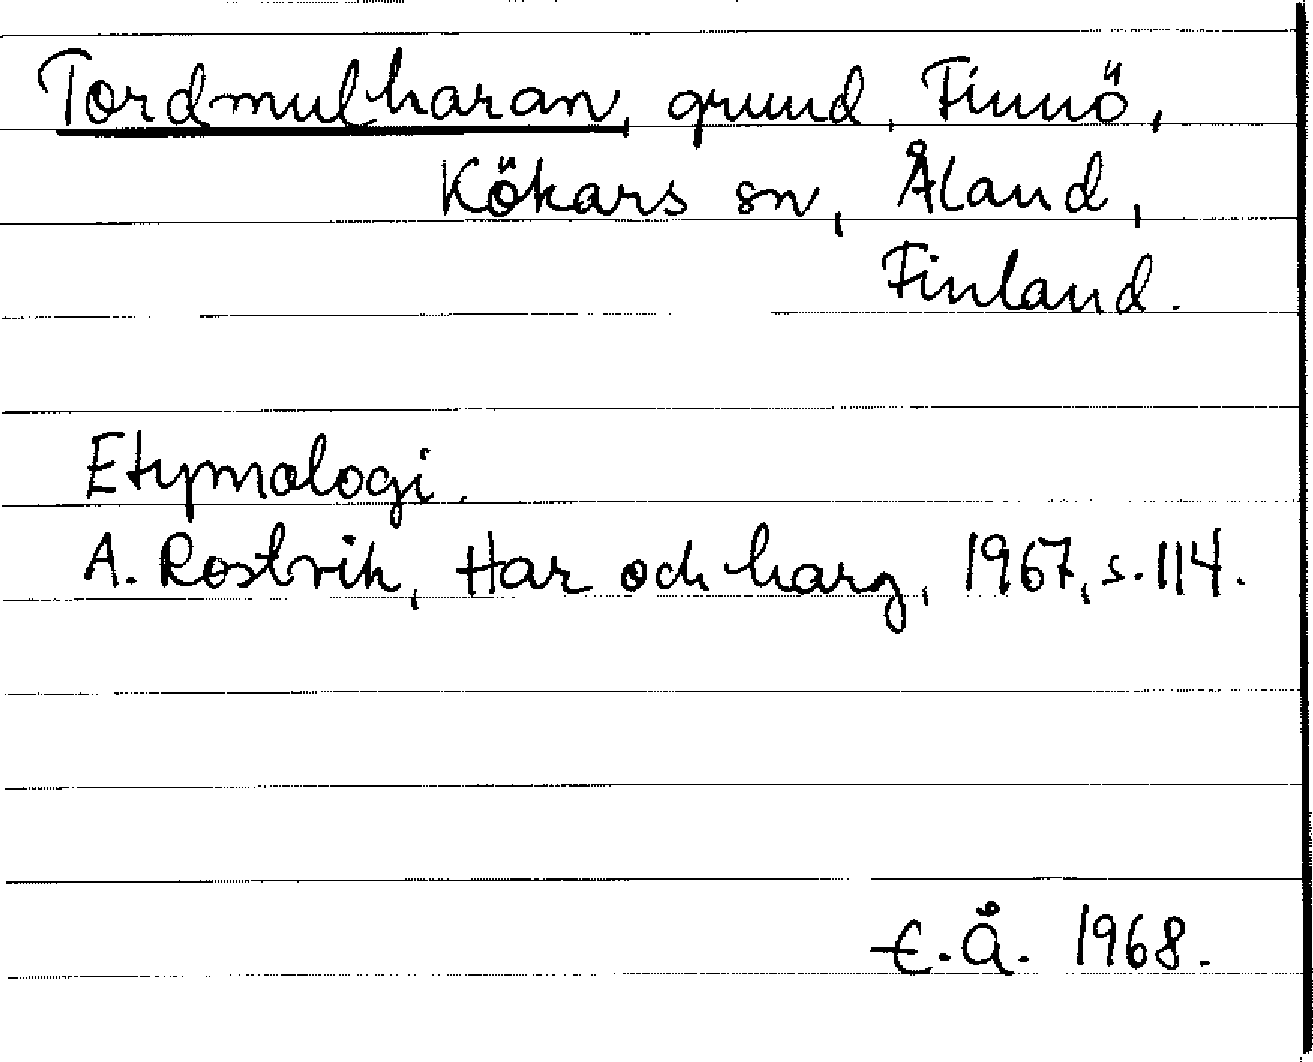 Tordmulharan, grund, Finnö,
Kökars sn, Åland,
Finland.
Etymologi.
A. Rostvik, Har och harg, 1967, s. 114.
E.Å. 1968.